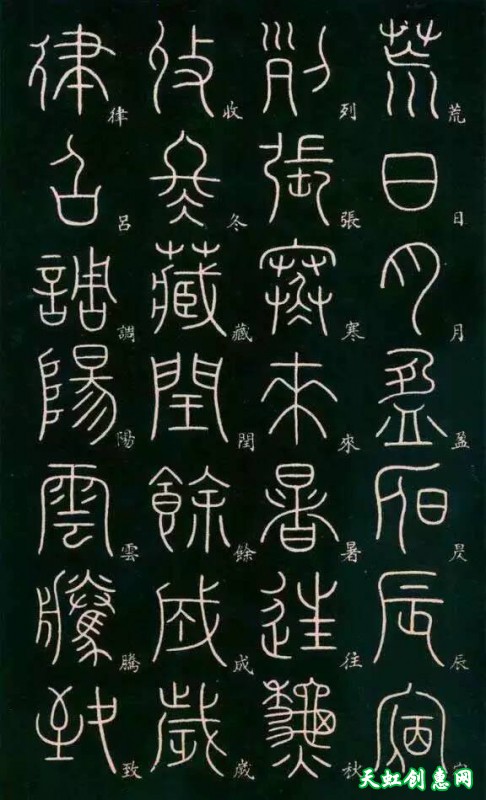 荒日月盈昃辰宿
列張寒來暑往秋
收冬藏閏餘成歲
律呂調陽雲騰致
天虹创惠网